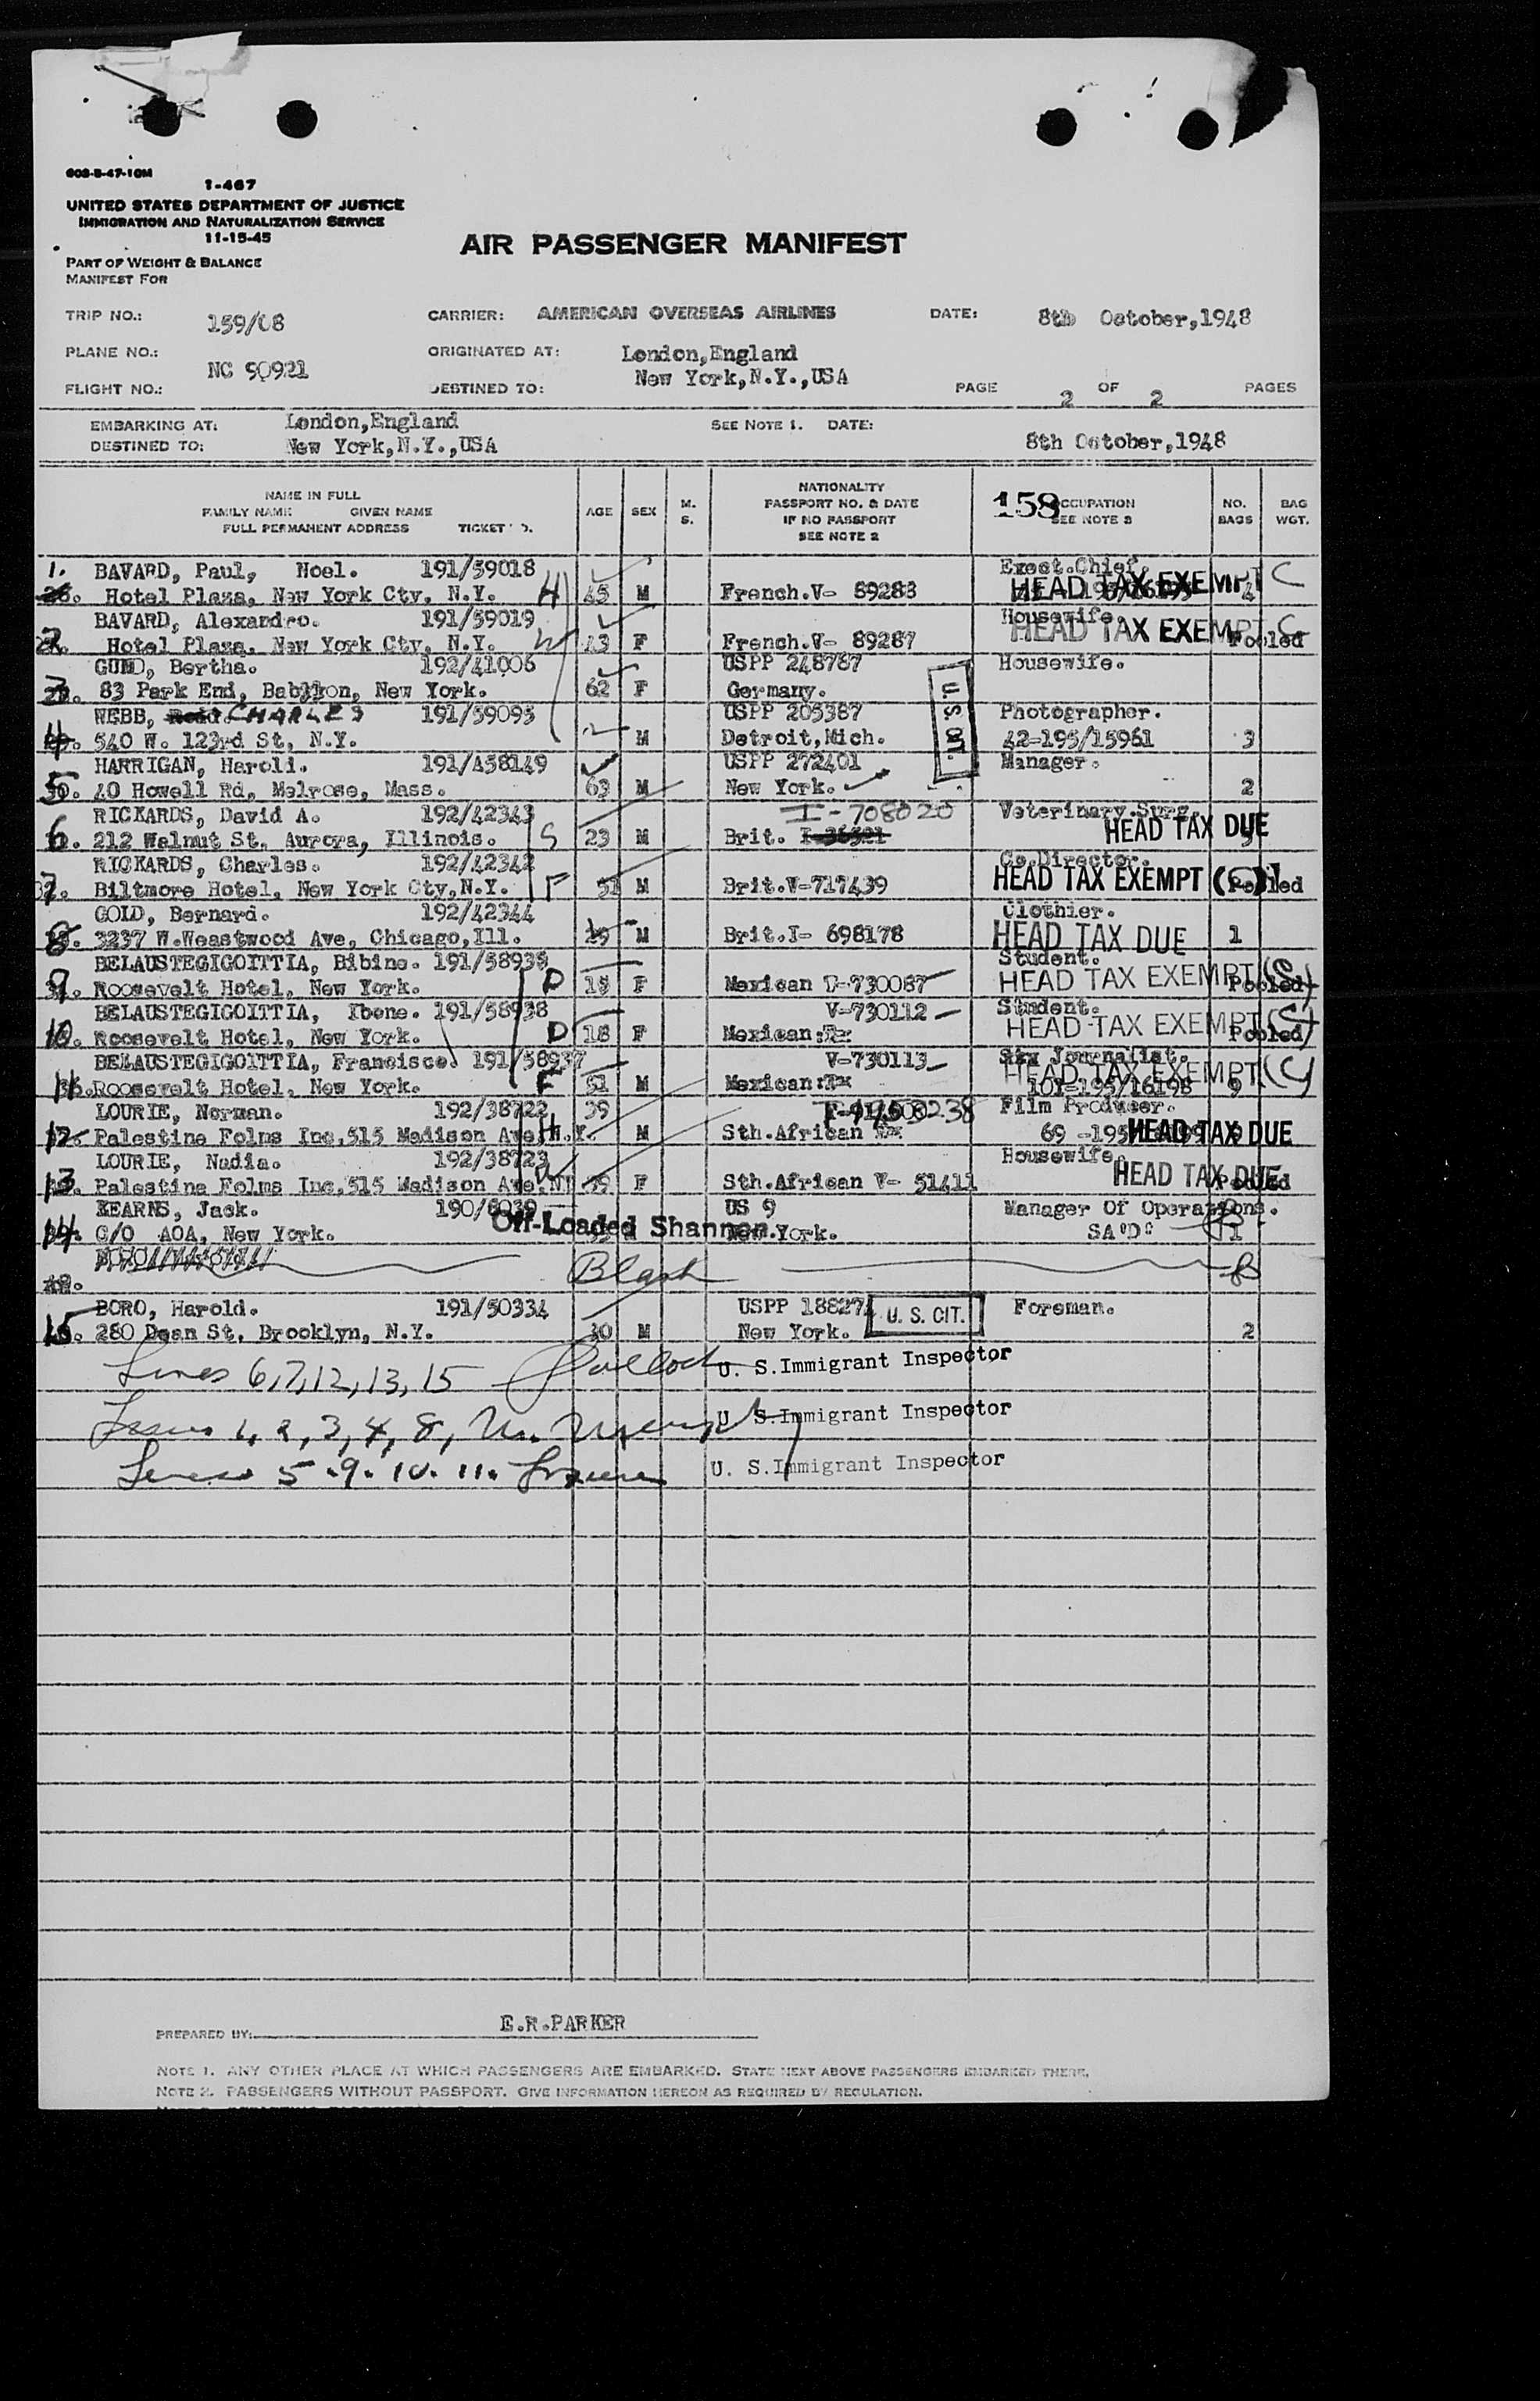 603-8-47-10M
1-467
UNITED STATES DEPARTMENT OF JUSTICE
IMMIGRATION AND NATURALIZATION SERVICE
11-15-45
AIR PASSENGER MANIFEST
PART OF WEIGHT & BALANCE
MANIFEST FOR
TRIP NO.: 159/08 CARRIER: AMERICAN OVERSEAS AIRLINES DATE: 8th October,1948
PLANE NO.: NC 90921 ORIGINATED AT: London,England
FLIGHT NO.: DESTINED TO: New York,N.Y.,USA PAGE 2 OF 2 PAGES
EMBARKING AT: London,England SEE NOTE 1. DATE: 8th October,1948
DESTINED TO: New York,N.Y.,USA
NAME IN FULL
FAMILY NAME GIVEN NAME
FULL PERMANENT ADDRESS TICKET
AGE SEX M. S.
NATIONALITY
PASSPORT NO. & DATE
IF NO PASSPORT
SEE NOTE 2
158 OCCUPATION
SEE NOTE 3
NO. BAGS
BAG WGT.
1. BAVARD, Paul, Noel. 191/59018 Exect.Chief.
Hotel Plaza, New York Cty, N.Y. H 45 M French.V- 89283 HEAD TAX EXEMPT C 4
2. BAVARD, Alexandro. 191/59019 Housewife.
Hotel Plaza, New York Cty, N.Y. W 43 F French.V- 89287 HEAD TAX EXEMPT C Pooled
3. GUND, Bertha. 192/41006 USPP 248787 Housewife.
83 Park End, Babylon, New York. 62 F Germany.
U.S. CIT.
4. WEBB, CHARLES 191/59095 USPP 205387 Photographer.
540 W. 123rd St, N.Y. M Detroit,Mich. 42-195/15961 3
5. HARRIGAN, Harold. 191/A58149 USPP 272401 Manager.
40 Howell Rd, Melrose, Mass. 63 M New York. 2
6. RICKARDS, David A. 192/42343 I-708020 Veterinary.Surg.
212 Walnut St, Aurora, Illinois. S 23 M Brit. HEAD TAX DUE
7. RICKARDS, Charles. 192/42342 Co.Director.
Biltmore Hotel, New York Cty,N.Y. F 51 M Brit.V-717439 HEAD TAX EXEMPT Pooled
8. GOLD, Bernard. 192/42344 Clothier.
3237 W.Weastwood Ave, Chicago,Ill. M Brit.I- 698178 HEAD TAX DUE 1
9. BELAUSTEGIGOITTIA, Bibino. 191/58935 Student.
Roosevelt Hotel, New York. D 15 F Mexican V-730087 HEAD TAX EXEMPT (S) Pooled
10. BELAUSTEGIGOITTIA, Ibone. 191/58938 V-730112 Student.
Roosevelt Hotel, New York. D 18 F Mexican HEAD TAX EXEMPT (S) Pooled
11. BELAUSTEGIGOITTIA, Francisco. 191/58937 V-730113 Journalist.
Roosevelt Hotel, New York. F 51 M Mexican HEAD TAX EXEMPT (C) 101-195/16198 9
12. LOURIE, Norman. 192/38722 39 Film Producer.
Palestine Folms Inc,515 Madison Ave,N.Y. H M Sth.African HEAD TAX DUE
13. LOURIE, Nadia. 192/38723 Housewife.
Palestine Folms Inc,515 Madison Ave,NY W 39 F Sth.African V- 51411 HEAD TAX DUE Pooled
14. KEARNS, Jack. 190/6039 US 9 Manager Of Operations.
C/O AOA, New York. Off-Loaded Shannon. New York. SA"D" 1
Blank
15. BORO, Harold. 191/50334 USPP 188274 U. S. CIT. Foreman.
280 Dean St, Brooklyn, N.Y. 30 M New York. 2
Lines 6,7,12,13,15 U. S.Immigrant Inspector
Lines 1, 2, 3, 4, 8, U. S.Immigrant Inspector
Lines 5.9.10.11. U. S.Immigrant Inspector
PREPARED BY: E.R.PARKER
NOTE 1. ANY OTHER PLACE AT WHICH PASSENGERS ARE EMBARKED. STATE NEXT ABOVE PASSENGERS EMBARKED THERE.
NOTE 2. PASSENGERS WITHOUT PASSPORT. GIVE INFORMATION HEREON AS REQUIRED BY REGULATION.